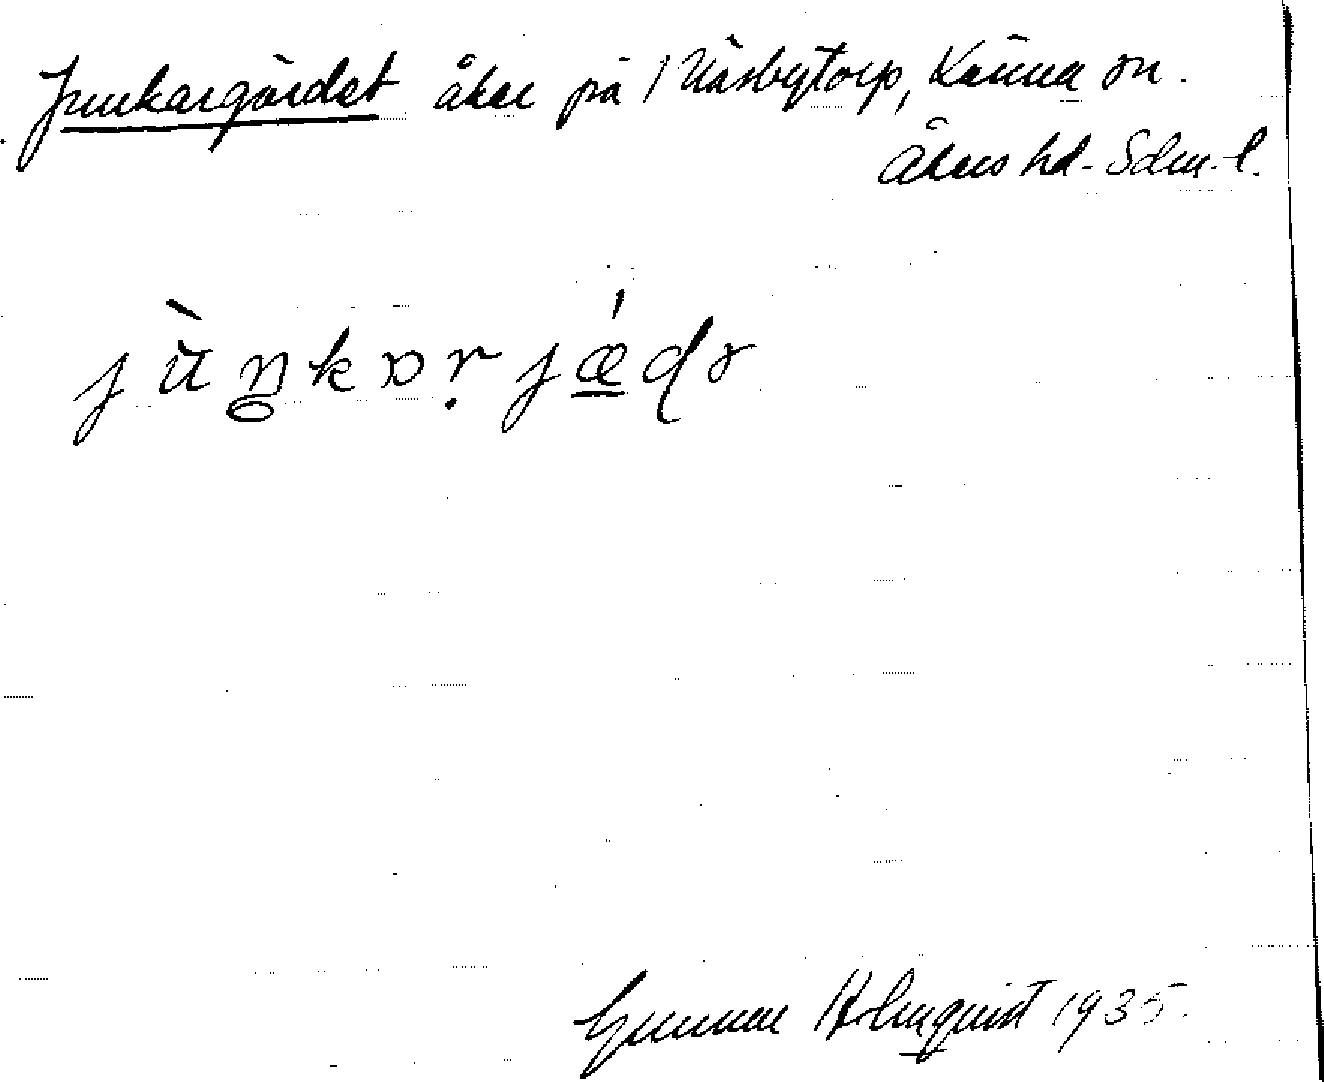 Junkargärdet åker på Näsbytorp, Kärna sn.
Åkers hd. Sdm. l.
jùŋkɒrjǽdə
Gunnar Holmquist 1935.